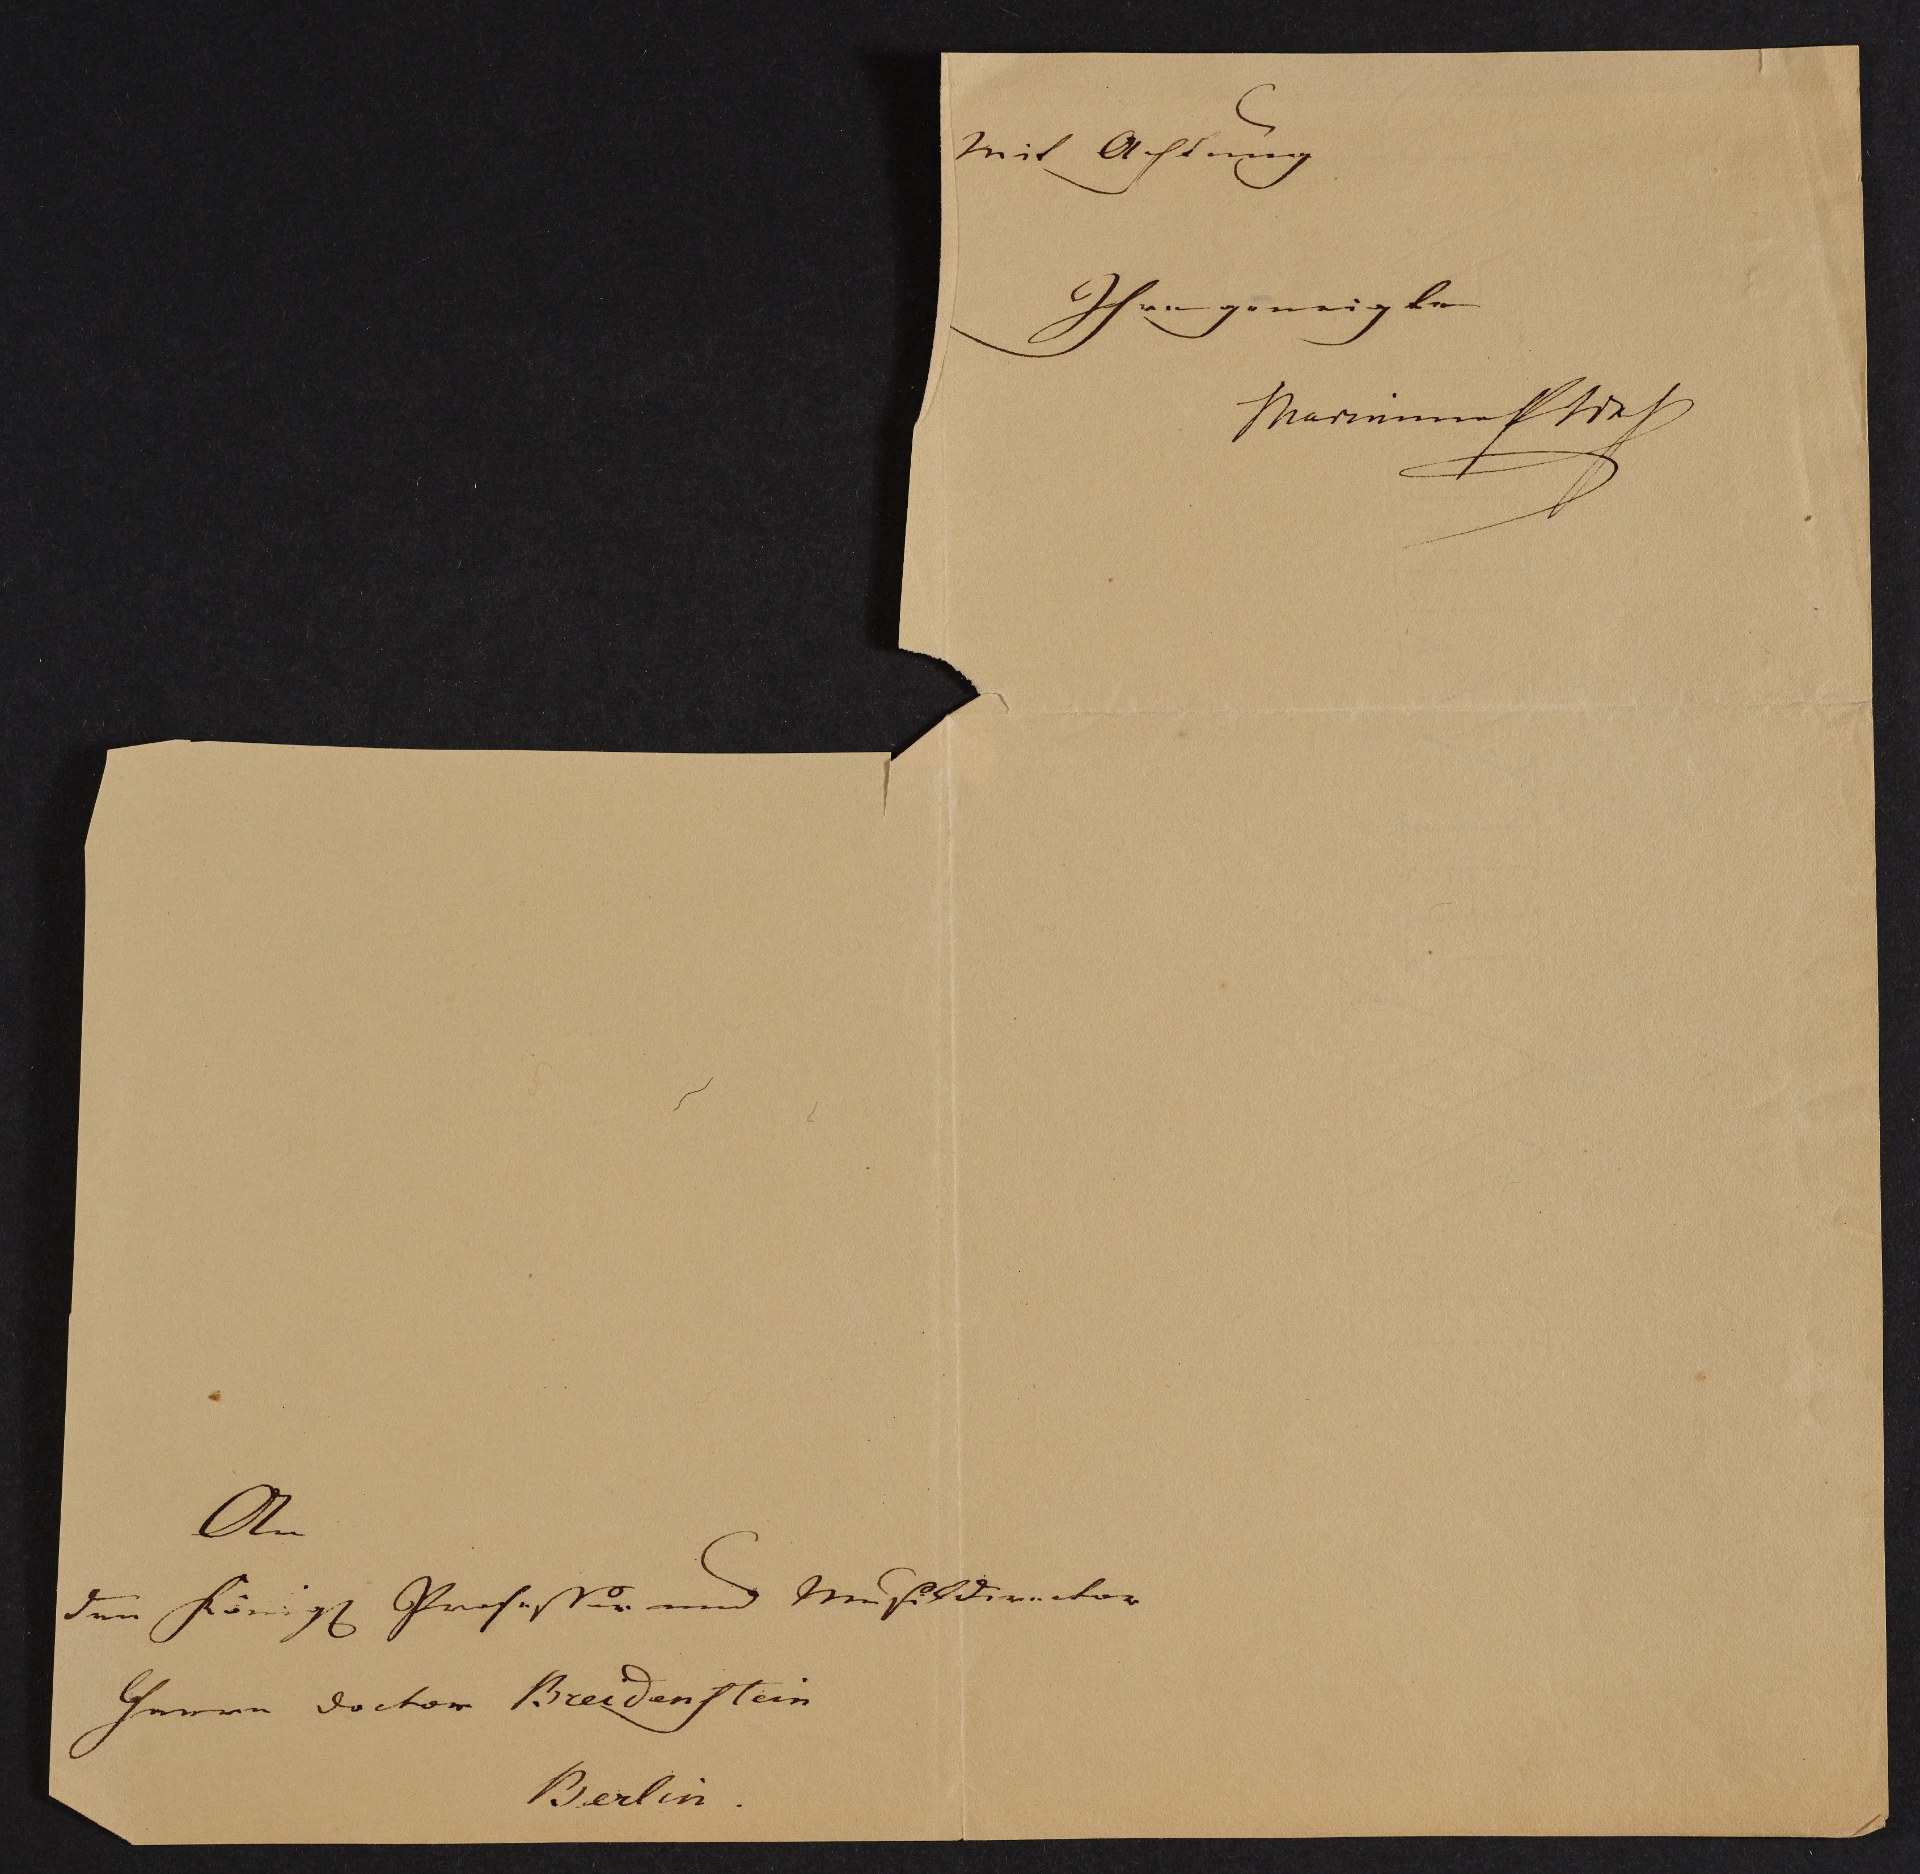 Mit Achtung
Ihre geneigte
Marianne
An
den Königl Professor und Musikdirector
Herrn Doctor Breidenstein
Berlin.